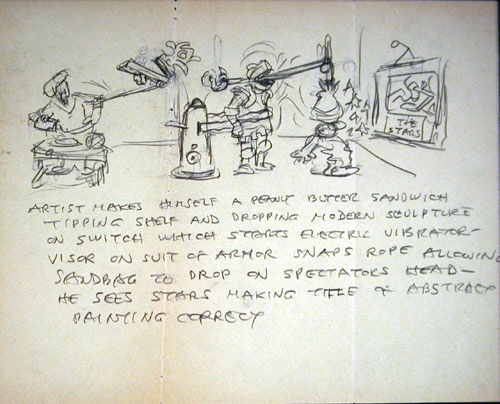 THE
STARS
ARTIST MAKES HIMSELF A PEANUT BUTTER SANDWICH
TIPPING SHELF AND DROPPING MODERN SCULPTURE
ON SWITCH WHICH STARTS ELECTRIC VIBRATOR-
VISOR ON SUIT OF ARMOR SNAPS ROPE ALLOWING
SANDBAG TO DROP ON SPECTATORS HEAD-
HE SEES STARS MAKING TITLE OF ABSTRACT
PAINTING CORRECT